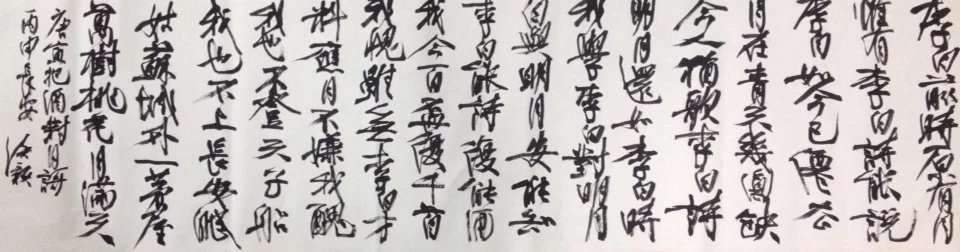 李白前時原有月
惟有李白詩能說
李白如今已僊去
月在青天幾圓缺
今人猶歌李白詩
明月還如李白時
我學李白對明月
白與明月安能知
李白能詩復能酒
我今百杯復千首
我愧雖無李白才
料應月不嫌我醜
我也不登天子船
我也不上長安眠
姑蘇城外一茅屋
萬樹桃花月滿天
唐寅把酒對月詩
丙申長安